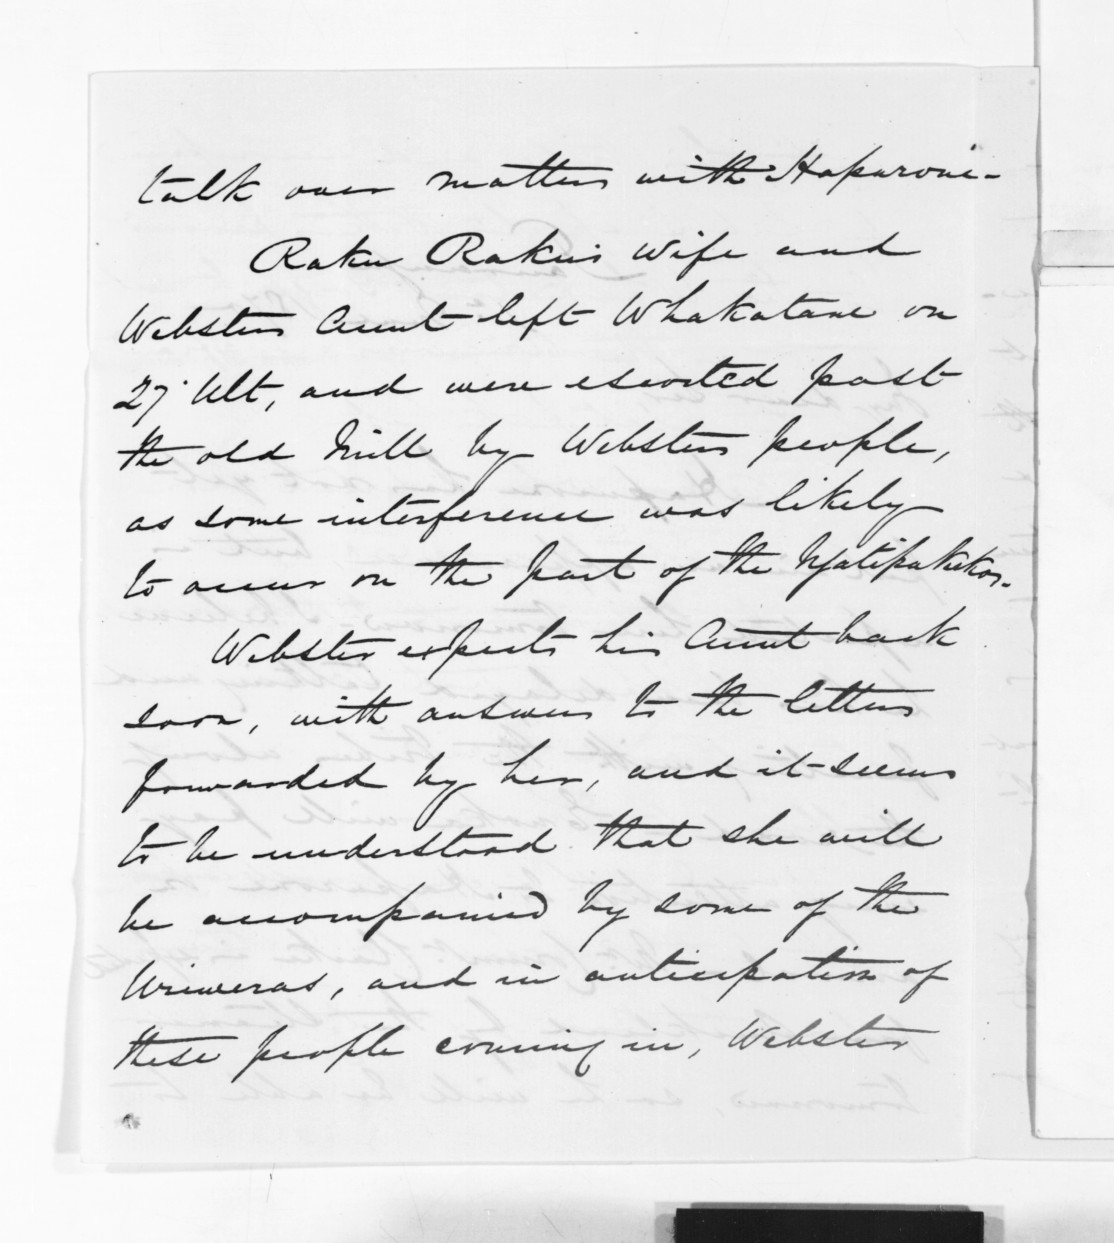 talk over matters with Hapurona.
Raku Rakus wife and
Websters Aunt left Whakatane on
27 Ult, and were escorted past
the old Mill by Websters people,
as some interference was likely
to occur on the part of the Ngatipukekos.
Webster expects his Aunt back
soon, with answers to the letters
forwarded by her, and it seems
to be understood that she will
be accompanied by some of the
Uriweras, and in anticipation of
these people coming in, Webster